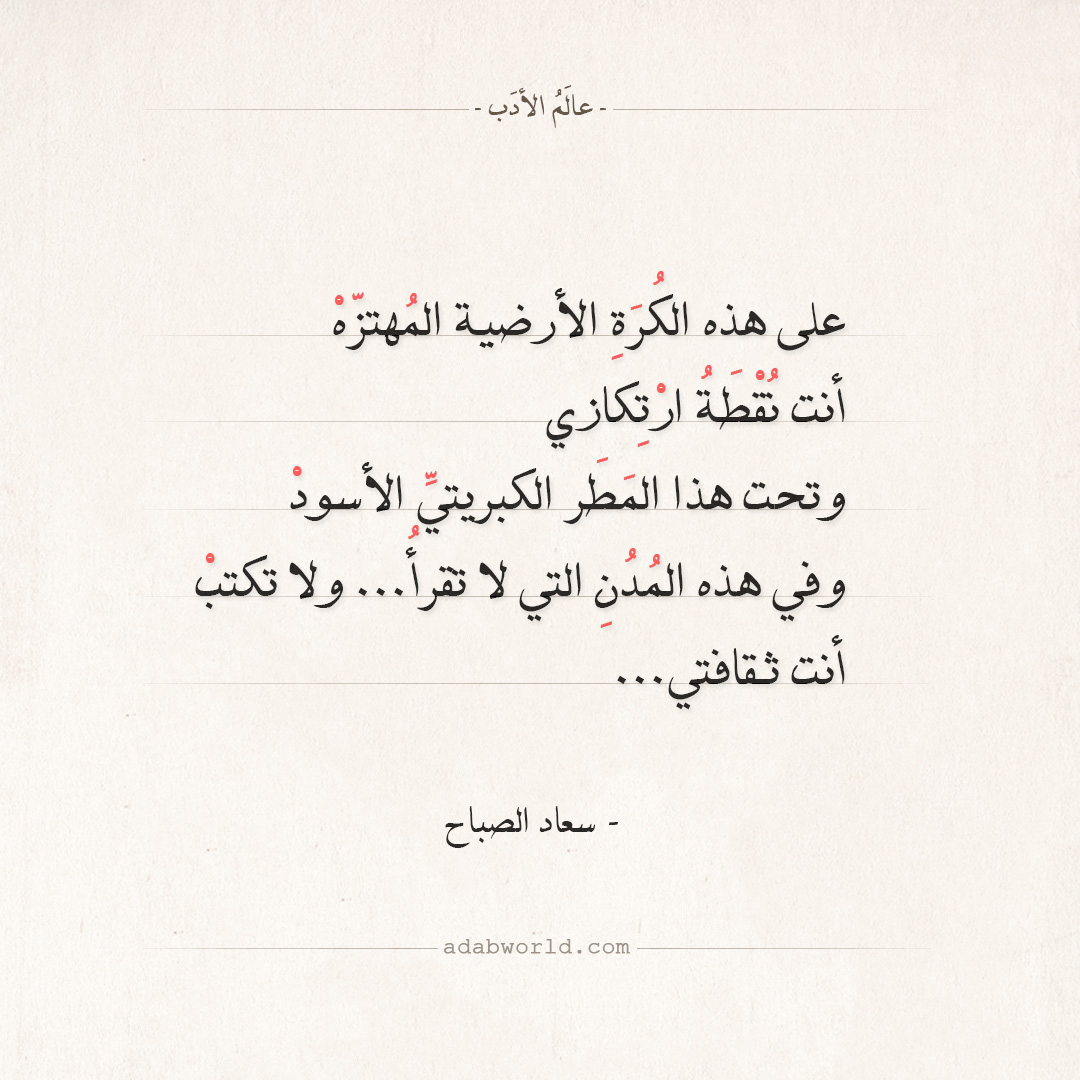 - عالَمُ الأدَب -
على هذه الكُرَةِ الأرضيـة المُهتزّهْ
أنت نُقْطَةُ ارْتِكازي
وتحت هذا المَطَر الكبريتيِّ الأسودْ
وفي هذه المُدُنِ التي لا تقرأُ... ولا تكتبْ
أنت ثـقافتي...
- سعاد الصباح
adabworld.com